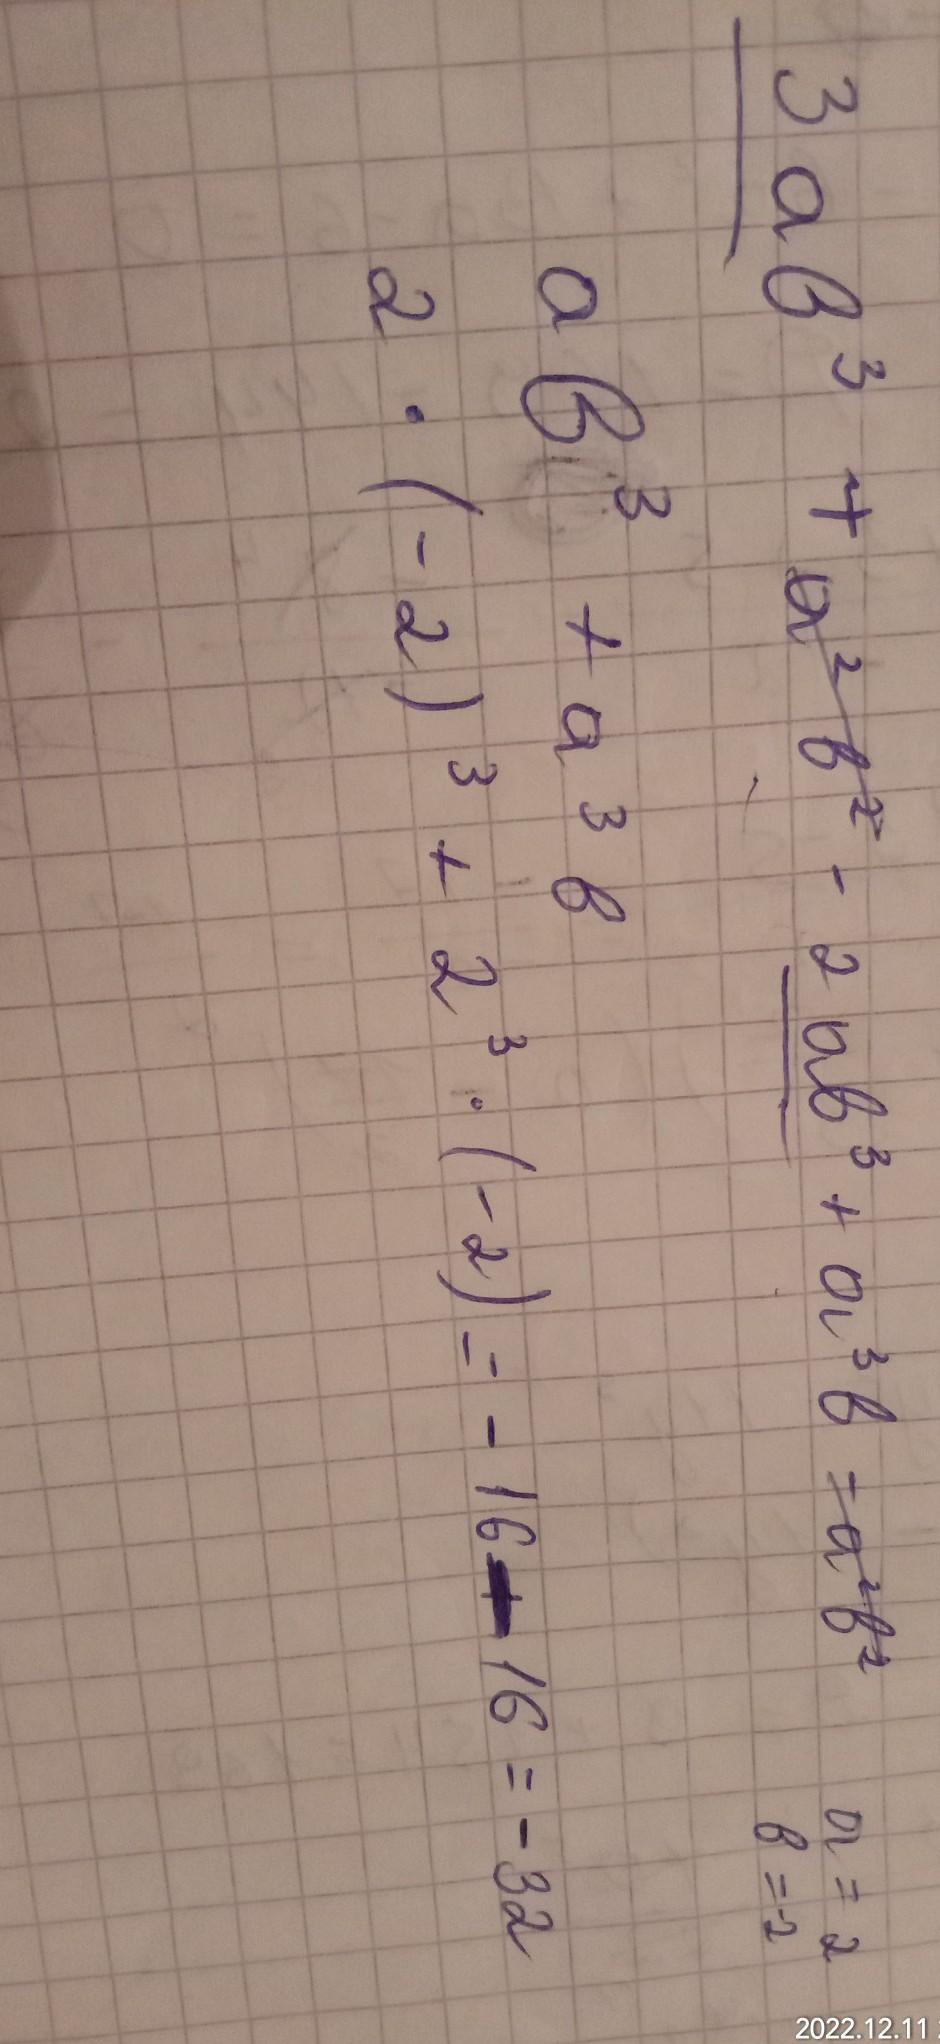 3ab³ + a²b² - 2ab³ + a³b - a²b²
a = 2
b = -2
ab³ + a³b
2 · (-2)³ + 2³ · (-2) = -16 - 16 = -32
2022.12.11